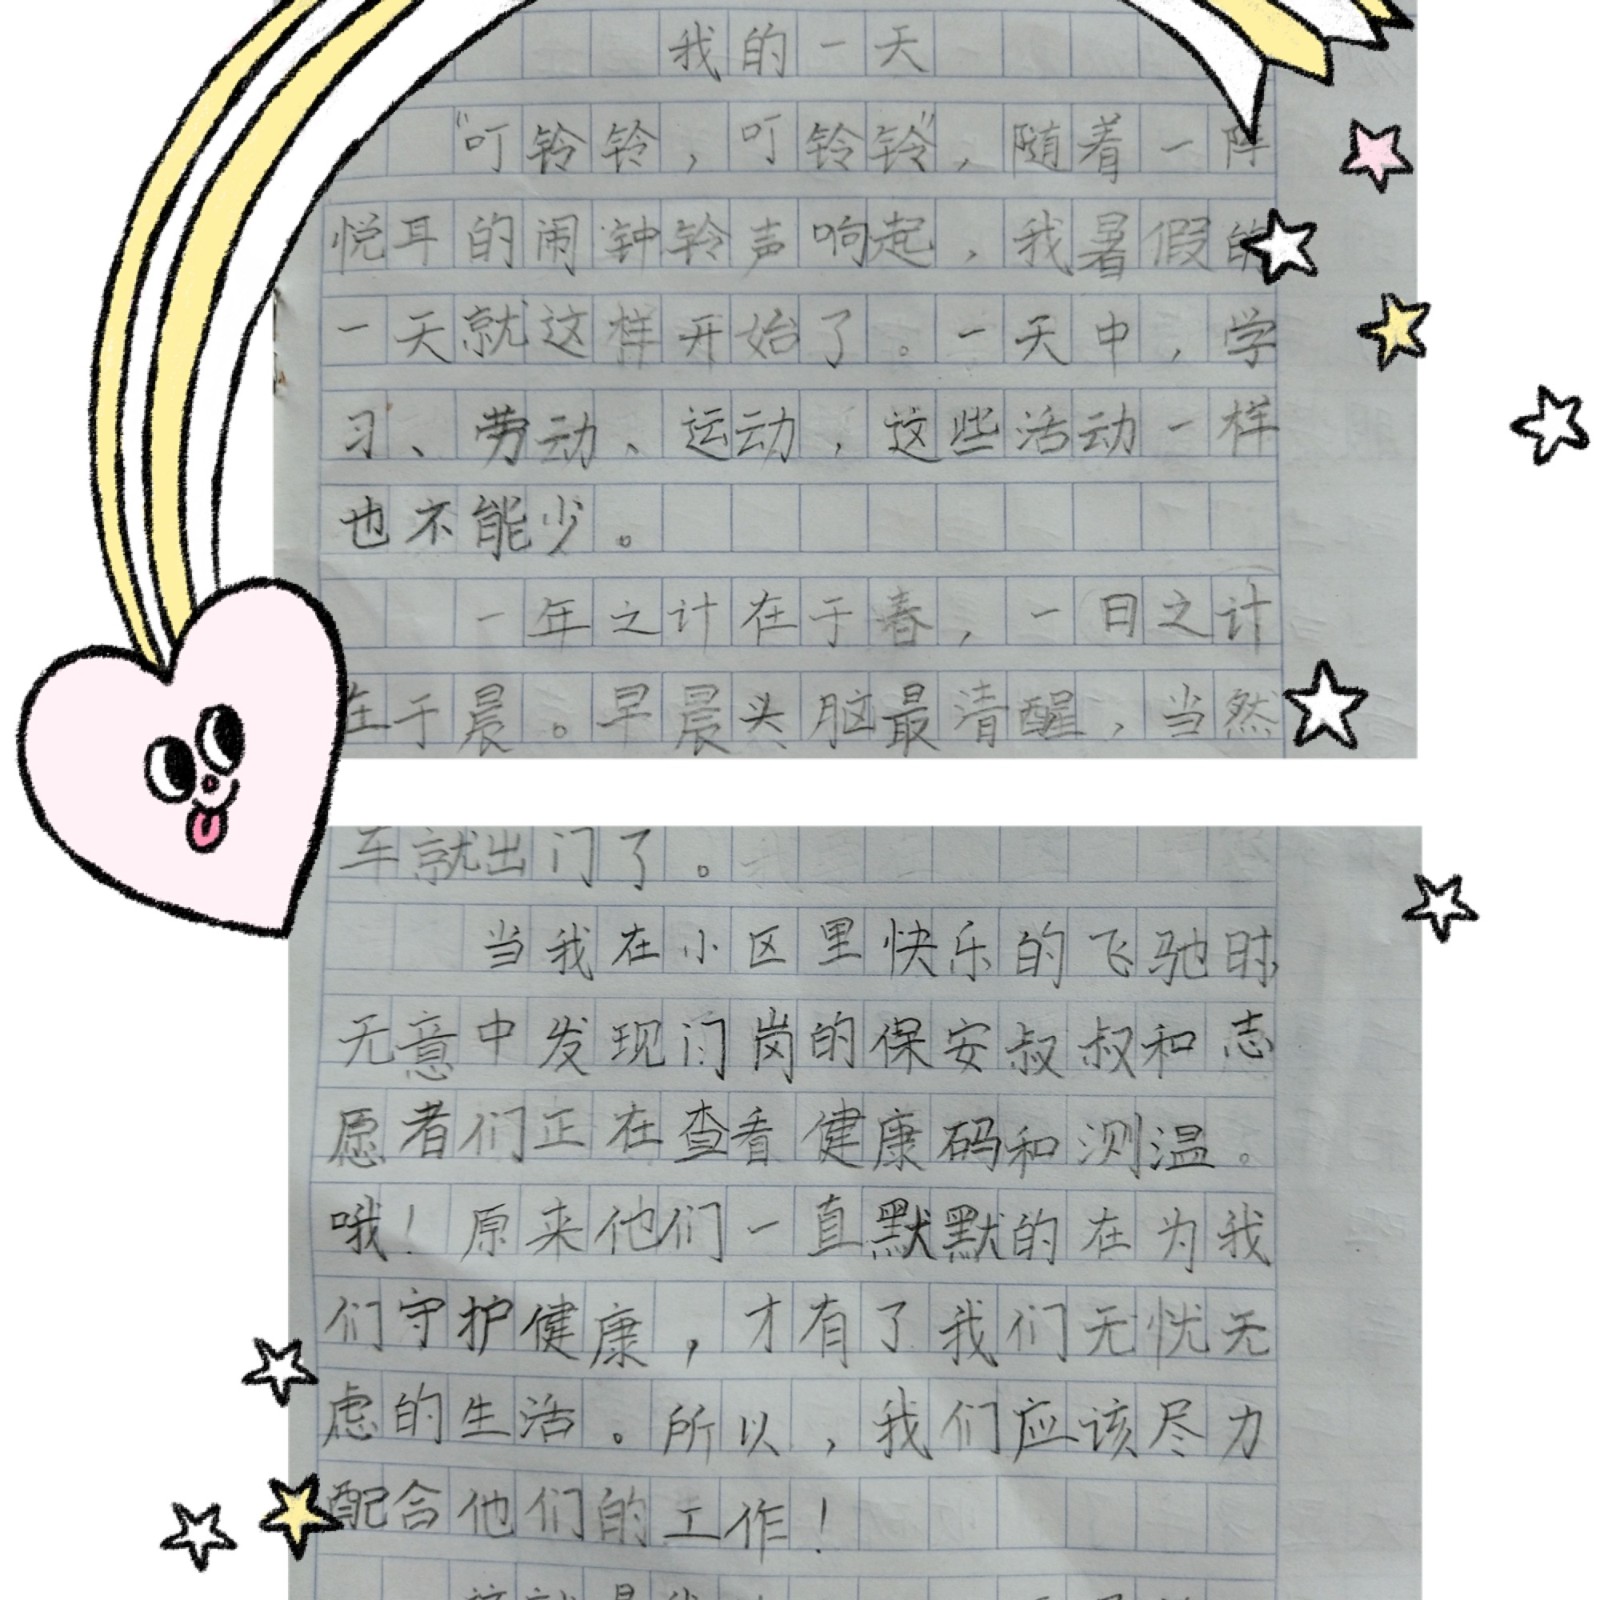 我的一天
"叮铃铃，叮铃铃"，随着一阵
悦耳的闹钟铃声响起，我暑假的
一天就这样开始了。一天中，学
习、劳动、运动，这些活动一样
也不能少。
一年之计在于春，一日之计
在于晨。早晨头脑最清醒，当然
车就出门了。
当我在小区里快乐的飞驰时，
无意中发现门岗的保安叔叔和志
愿者们正在查看健康码和测温。
哦！原来他们一直默默的在为我
们守护健康，才有了我们无忧无
虑的生活。所以，我们应该尽力
配合他们的工作！